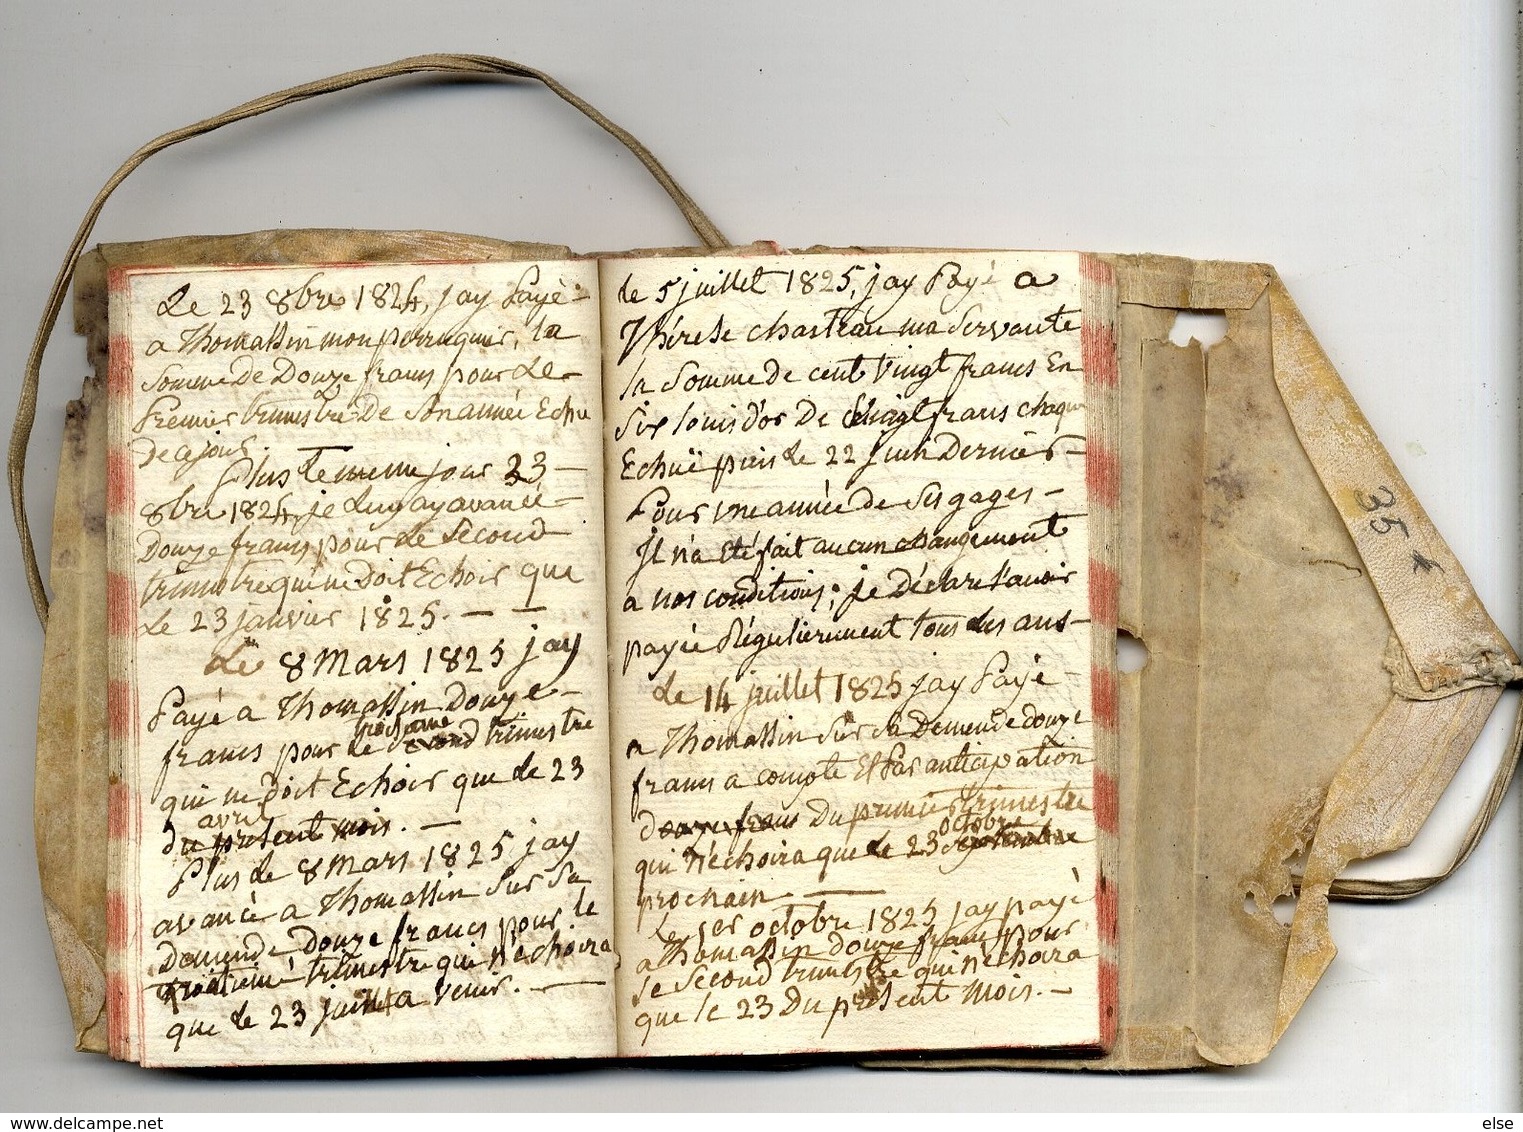 Le 23 8bre 1824, jay Payè
a Thomassin mon perruquier, la
Somme De Douze francs pour Le
Premier trimestre De Son année Echu
De ce jour.
Plus Le meme jour 23
8bre 1824, je luy ay avancé
Douze francs pour Le Second
trimestre qui ne Doit Echoir que
Le 23 janvier 1825.
Le 8 Mars 1825 jay
Payè a Thomassin Douze
francs pour le prochaine second trimestre
qui ne doit Echoir que Le 23
avril
du présent mois.
Plus Le 8 Mars 1825 jay
avancè a Thomassin Sur Sa
Demande, Douze francs pour le
quatrieme trimestre qui n'echoira
que Le 23 juillet a venir.
le 5 juillet 1825, jay Payè a
Thérese chasteau ma Servante
la Somme de cent Vingt francs En
Six louis d'or De Vingt francs chaque
Echuë puis Le 22 juin Dernier
Pour une année de Ses gages
Il n'a Eté fait aucun changement
a nos conditions; je Déclare l'avoir
payée Régulierement tous Les ans
Le 14 juillet 1825 jay Payè
a Thomassin Sur Sa Demende douze
francs a compte Et Par anticipation
Douze francs Du premier trimestre
qui n'echoira que Le 23 octobre septembre
prochain
Le 1er octobre 1825 jay payè
a Thomassin Douze francs pour
le Second trimestre qui n'echoira
que le 23 Du présent Mois.
35 €
www.delcampe.net
else